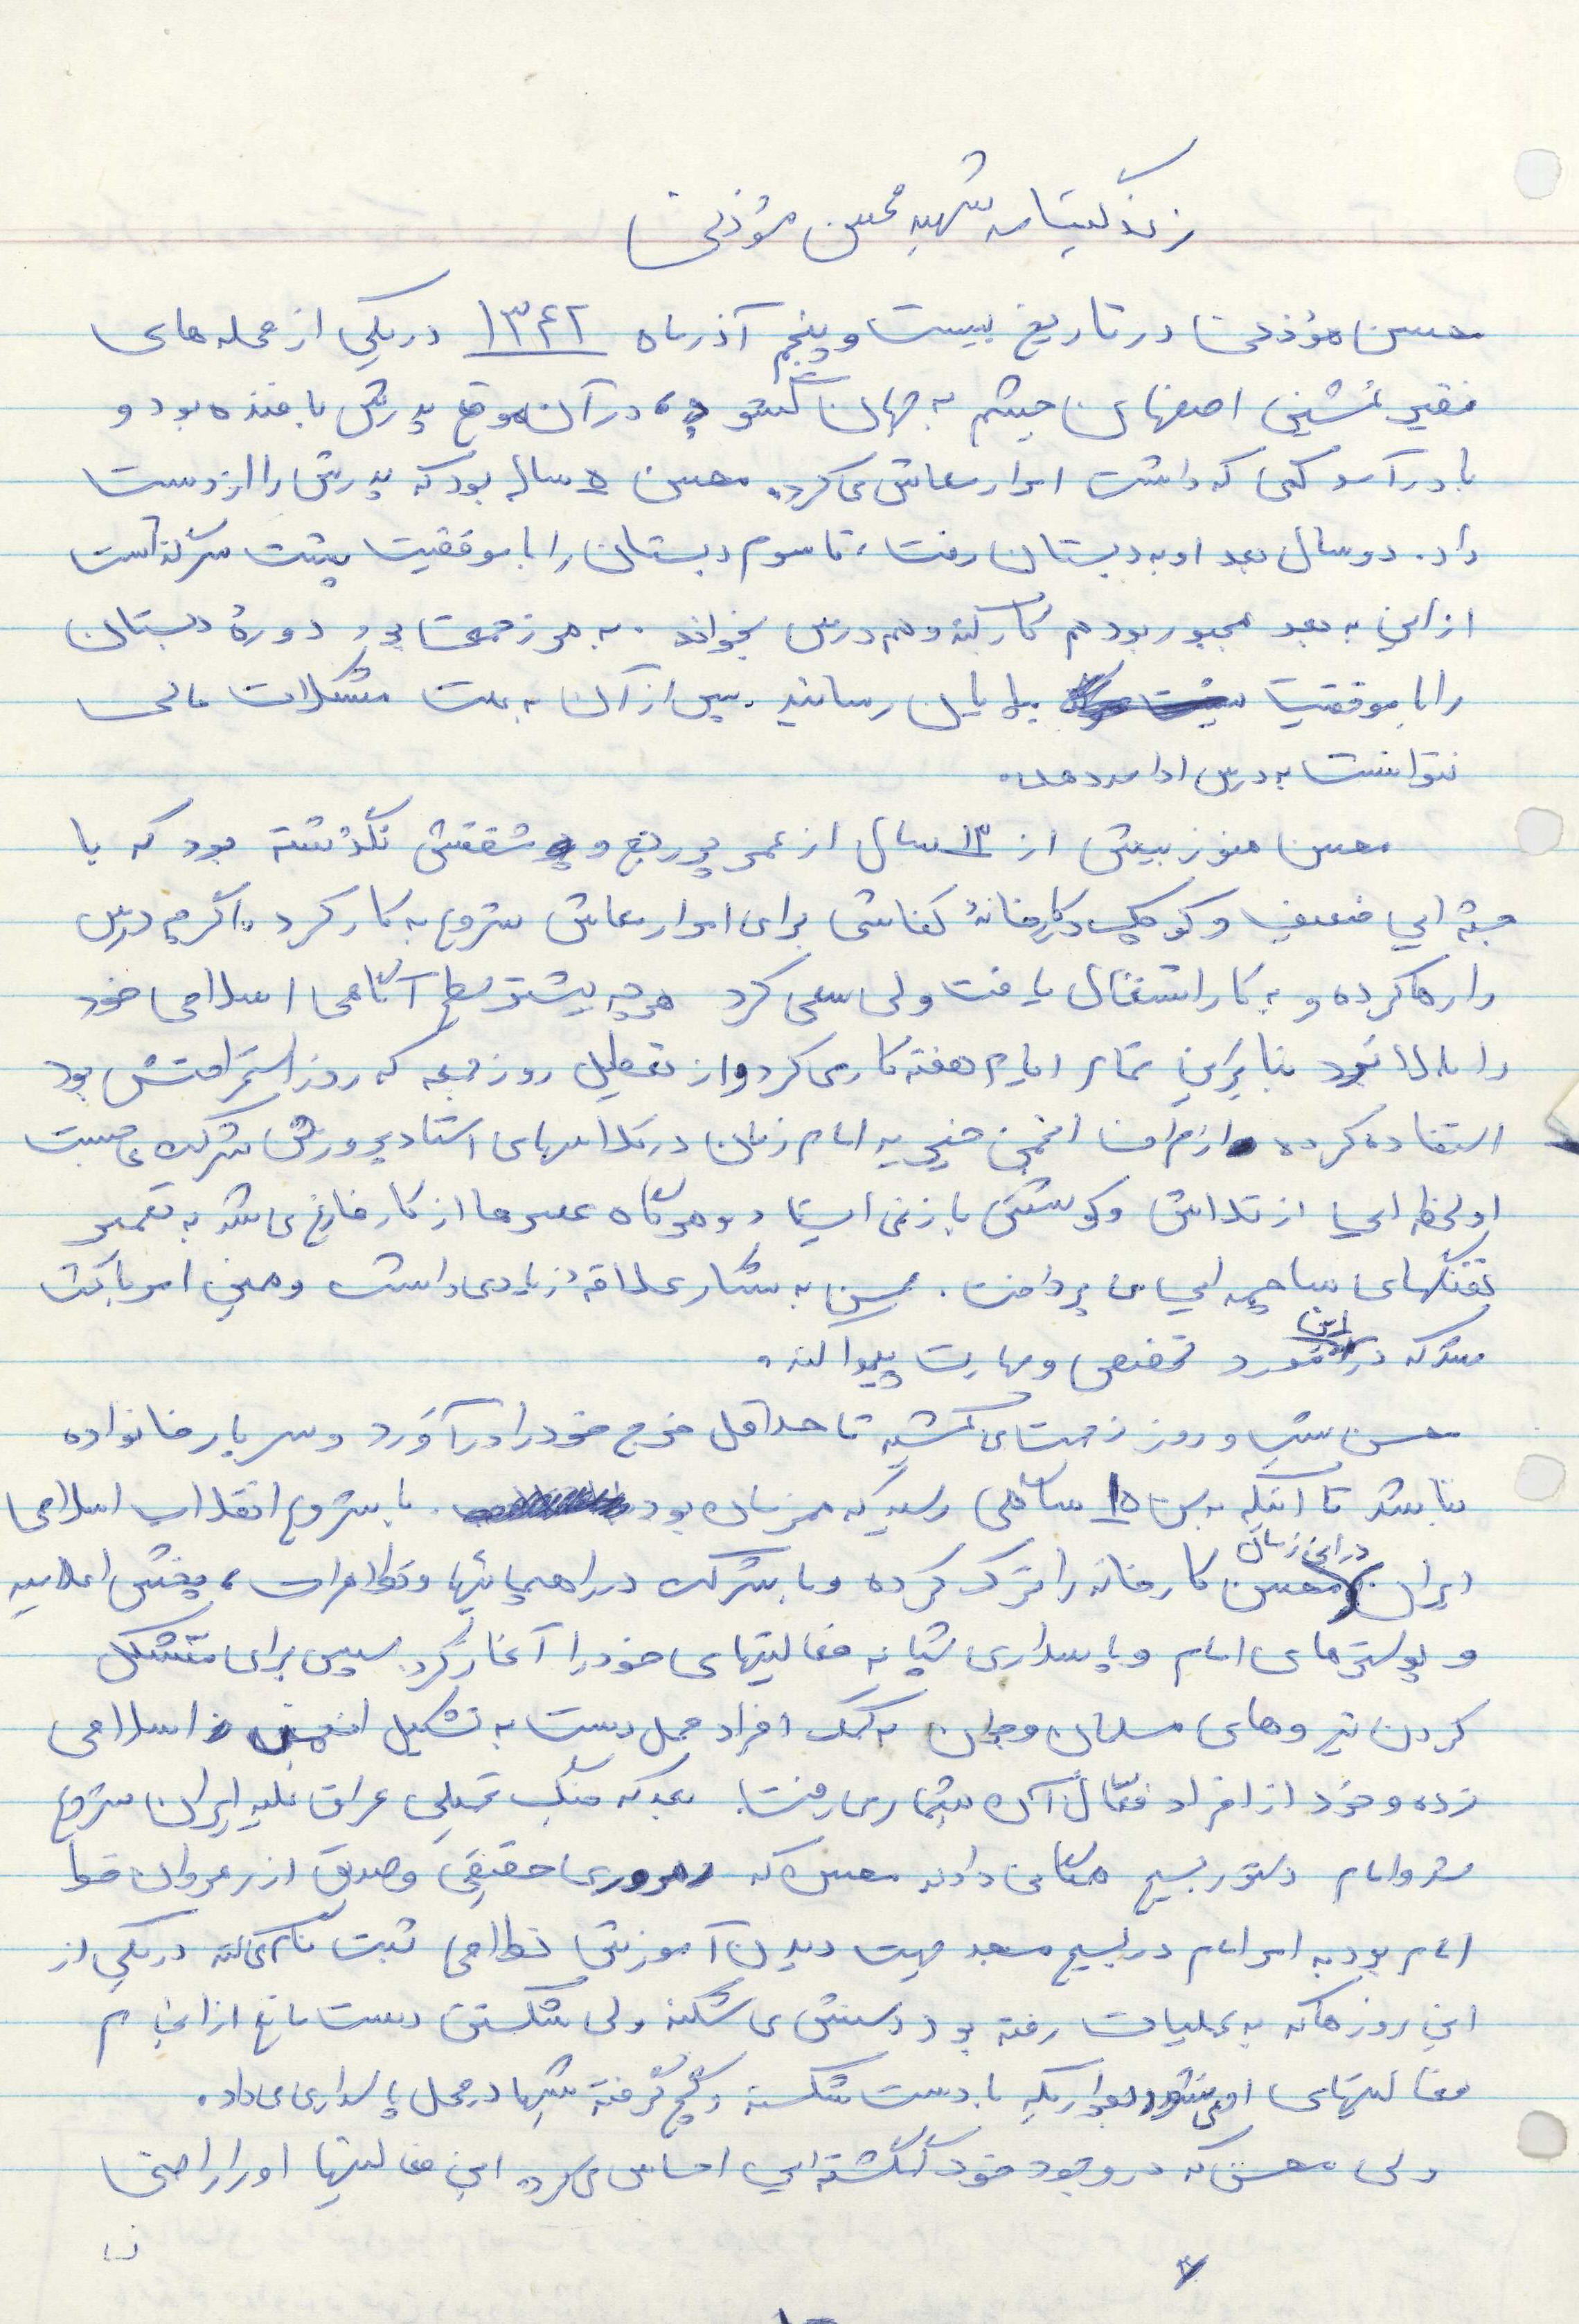 زندگینامه شهید محسن مؤذنی
محسن مؤذنی در تاریخ بیست و پنجم آذرماه ۱۳۴۲ در یکی از محله های
فقیر نشین اصفهان چشم به جهان گشود، در آن موقع پدرش بافنده بود و
با درآمد کمی که داشت امرار معاش می کرد. محسن ۵ ساله بود که پدرش را از دست
داد. دو سال بعد او به دبستان رفت، تا سوم دبستان را با موفقیت پشت سر گذاشت
از این به بعد مجبور بود هم کار کند و هم درس بخواند. به هر زحمتی بود دورهٔ دبستان
را با موفقیت به پایان رسانید. پس از آن به علت مشکلات مالی
نتوانست به درس ادامه دهد.
محسن هنوز بیش از ۱۳ سال از عمر پر رنج و مشقتش نگذشته بود که با
جثه ایی ضعیف و کوچک در کارخانهٔ کفاشی برای امرار معاش شروع به کار کرد. اگرچه درس
را رها کرده و به کار اشتغال یافت ولی سعی کرد هرچه بیشتر سطح آگاهی اسلامی خود
را بالا برد بنابراین تمام ایام هفته کار می کرد و از تعطیل روز جمعه که روز استراحتش بود
استفاده کرده و از طرف انجمن ضجریه امام زمان در کلاسهای استاد پرورش شرکت می جست
او لحظه ایی از تلاش و کوشش باز نمی ایستاد و هرگاه عصرها از کار فارغ می شد به تعمیر
تفنگهای ساچمه ایی می پرداخت. محسن به شکار علاقهٔ زیادی داشت و همین امر باعث
شد که در این مورد تخصص و مهارت پیدا کند.
محسن شب و روز زحمت می کشید تا حداقل خرج خود را در آورد و سربار خانواده
نباشد تا اینکه به سن ۱۵ سالگی رسید که همزمان بود با شروع انقلاب اسلامی
ایران در این زمان محسن کارخانه را ترک کرده و با شرکت در راهپیمائیها و تظاهرات، پخش اعلامیه
و پوسترهای امام و پاسداری شبانه فعالیتهای خود را آغاز کرد. سپس برای متشکل
کردن نیروهای مسلمان و جوان به کمک افراد محل دست به تشکیل انجمن اسلامی
زده و خود از افراد فعّال آن بشمار می رفت. بعد که جنگ تحمیلی عراق علیه ایران شروع
شد و امام دستور بسیج همگانی دادند محسن که رهروی حقیقی و صدیق از رهروان خط
امام بود به امر امام در بسیج مسجد جهت دیدن آموزش نظامی ثبت نام می کند در یکی از
این روزها که به عملیات رفته بود دستش می شکند ولی شکستن دست مانع از این
فعالیتهای او نمی شود بطوریکه با دست شکسته و گچ گرفته شبها در محل پاسداری می داد.
ولی محسن که در وجود خود گمگشته ایی احساس می کرد این فعالیتها او را راضی